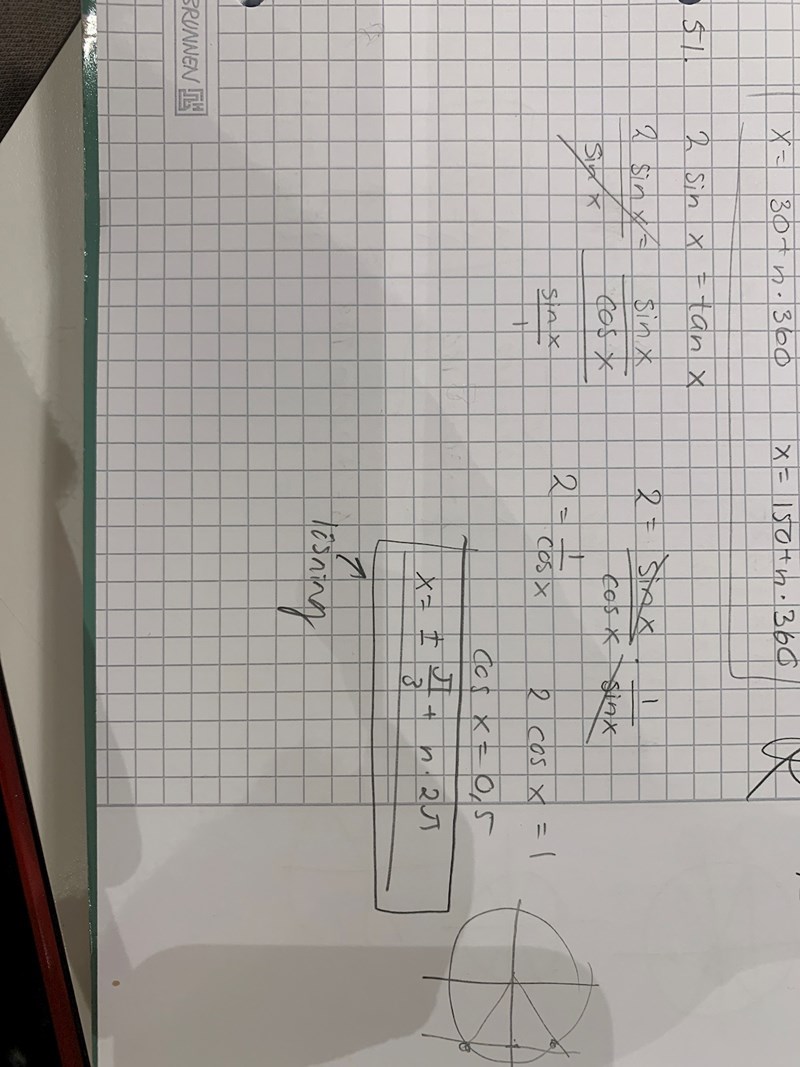 x = 30 + n·360 x = 150 + n·360
51. 2 sin x = tan x
2 sin x / sin x = sin x / cos x / sin x / 1
2 = sin x / cos x · 1 / sin x
2 = 1 / cos x 2 cos x = 1
cos x = 0,5
x = ± π/3 + n·2π
lösning
BRUNNEN